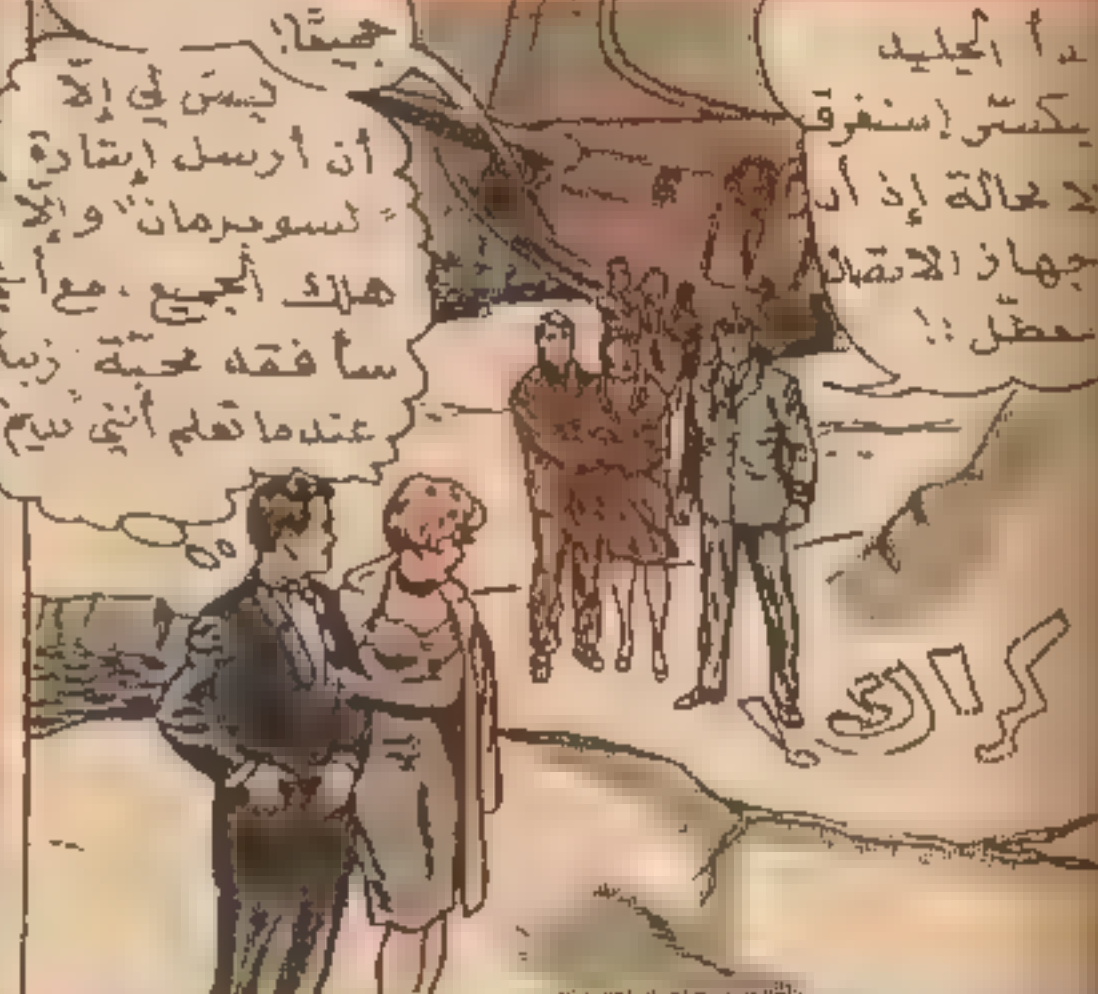 بدأ الجليد
يتكسّر! سنغرق
لا محالة إذ أن
جهاز الانقاذ
معطّل !!
جميعًا!
ليس لي إلّا
أن أرسل إشارة
"لسوبرمان" وإلّا
هلك الجميع . مع أني
سأفقد محبّة
عندما تعلم أنني نديم
كراك